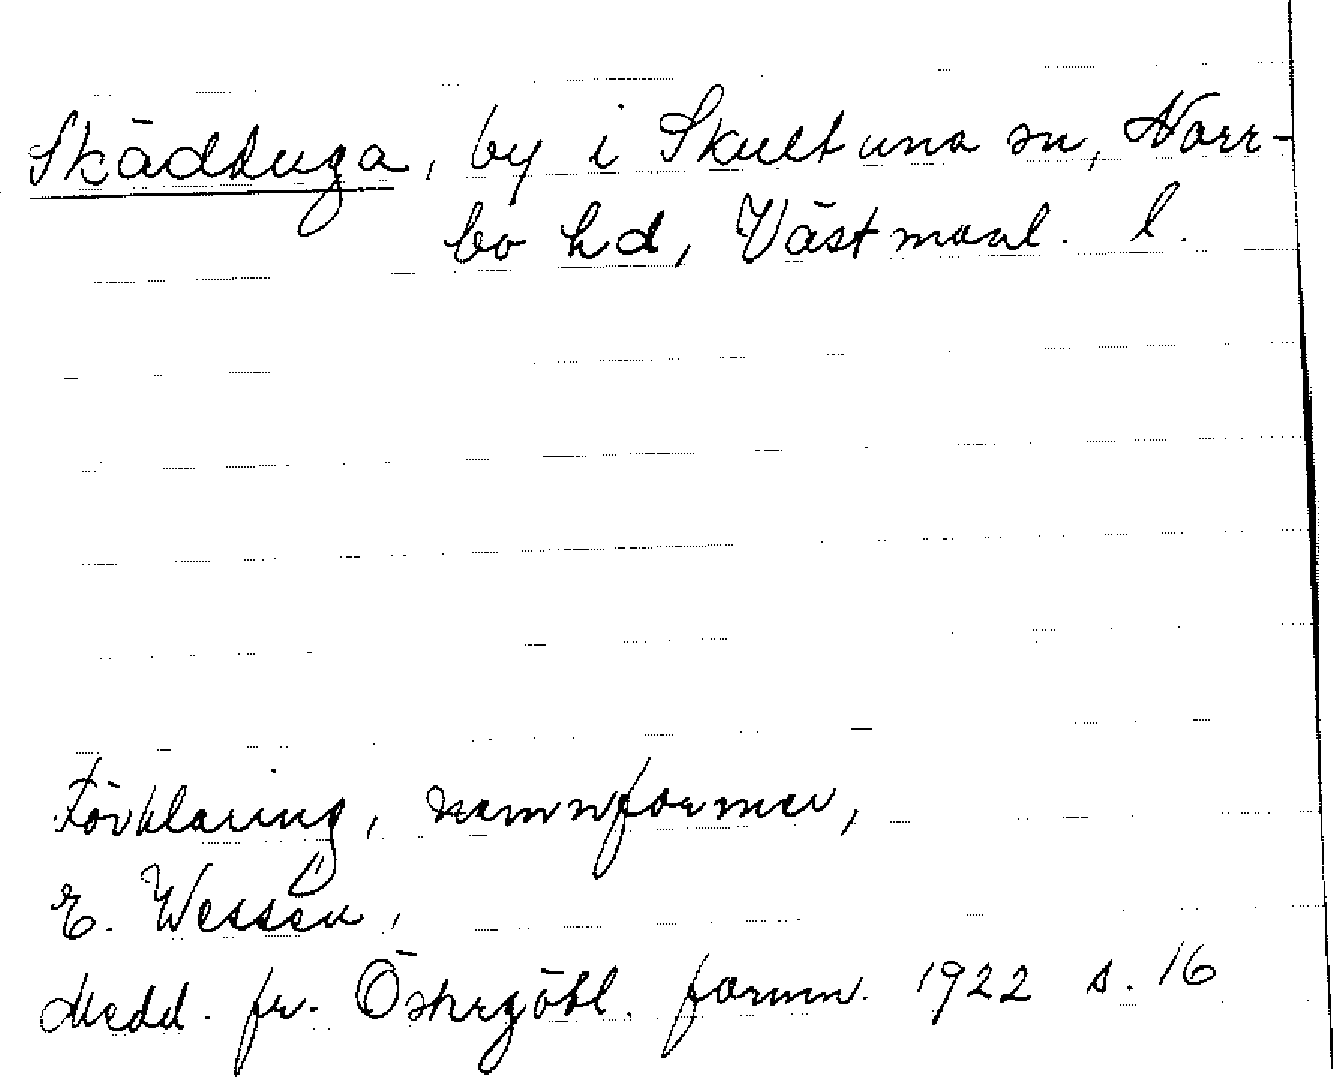 Skädduga, by i Skultuna sn, Norr-
bo hd, Västmanl. l.
Förklaring, namnformer,
E. Wessén,
Medd. fr. Östergötl. fornm. 1922 s. 16